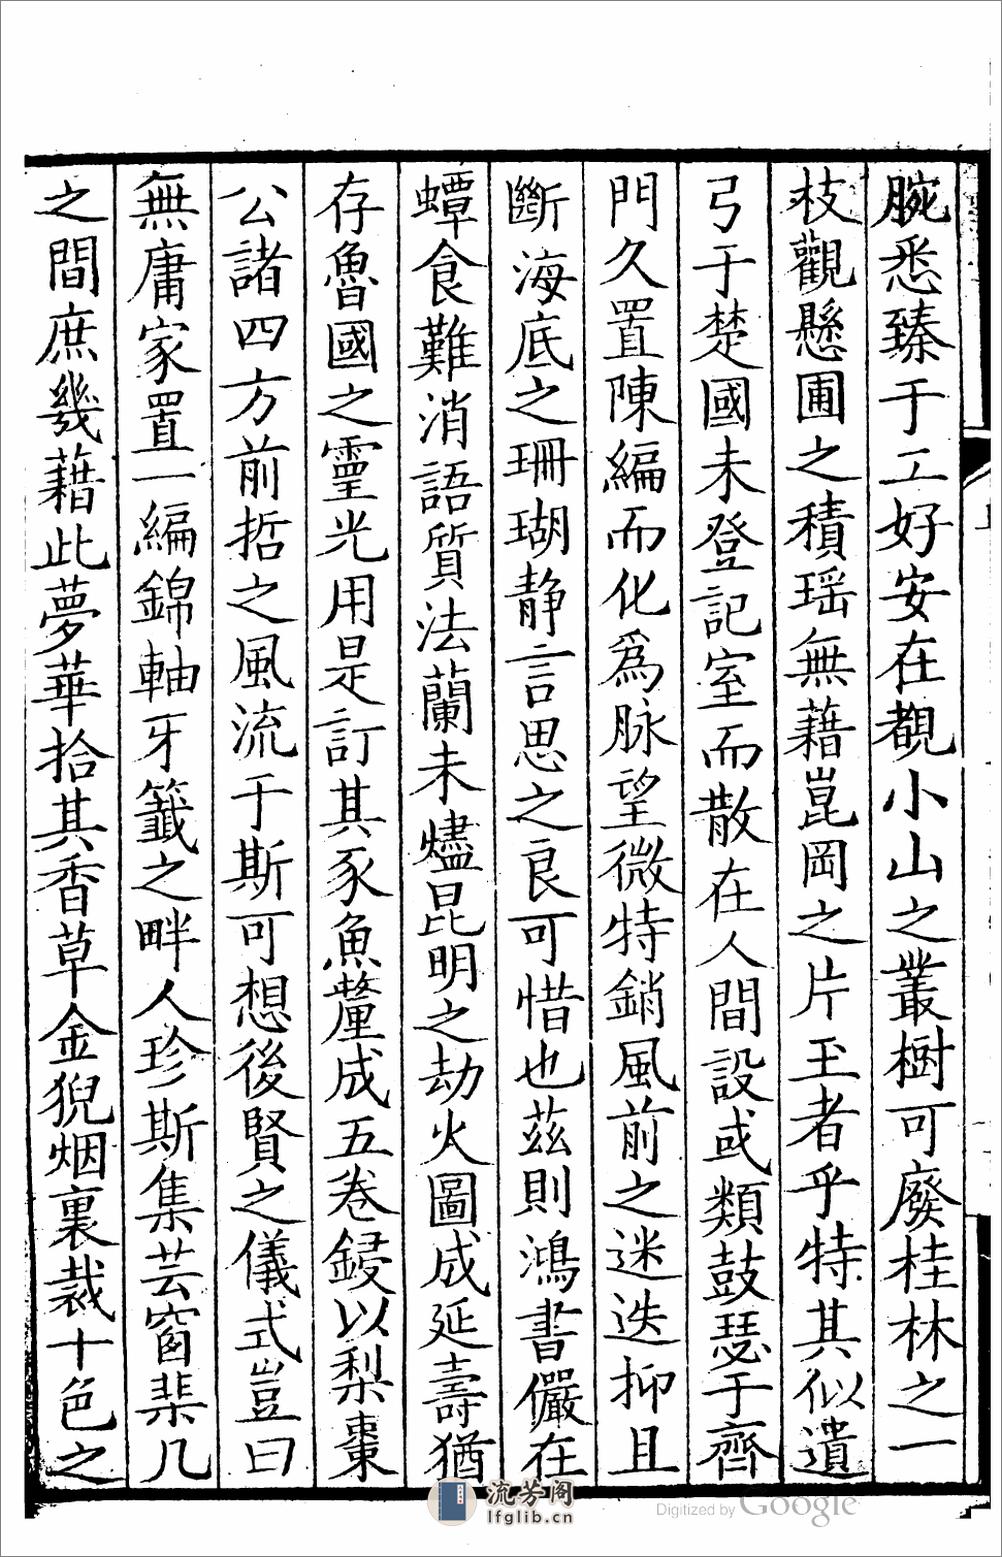 腕悉臻于工好安在覩小山之叢樹可廢桂林之一
枝觀懸圃之積瑶無藉崑岡之片玉者乎特其似遺
弓于楚國未登記室而散在人間設或類鼓瑟于齊
門久置陳編而化爲脉望微特銷風前之迷迭抑且
斷海底之珊瑚静言思之良可惜也茲則鴻書儼在
蟫食難消語質法蘭未燼昆明之劫火圖成延壽猶
存魯國之靈光用是訂其豕魚釐成五卷鋟以梨棗
公諸四方前哲之風流于斯可想後賢之儀式豈曰
無庸家置一編錦軸牙籤之畔人珍斯集芸窗棐几
之間庶幾藉此夢華拾其香草金猊烟裏裁十色之
流芳阁
lfglib.cn
Digitized by Google